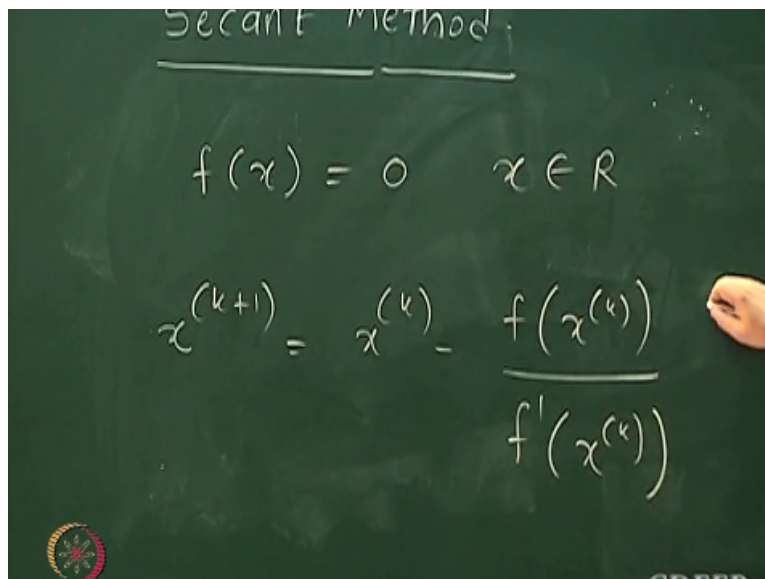 Secant Method.
f(x) = 0 x ∈ R
x^(k+1) = x^(k) - f(x^(k))
f'(x^(k))